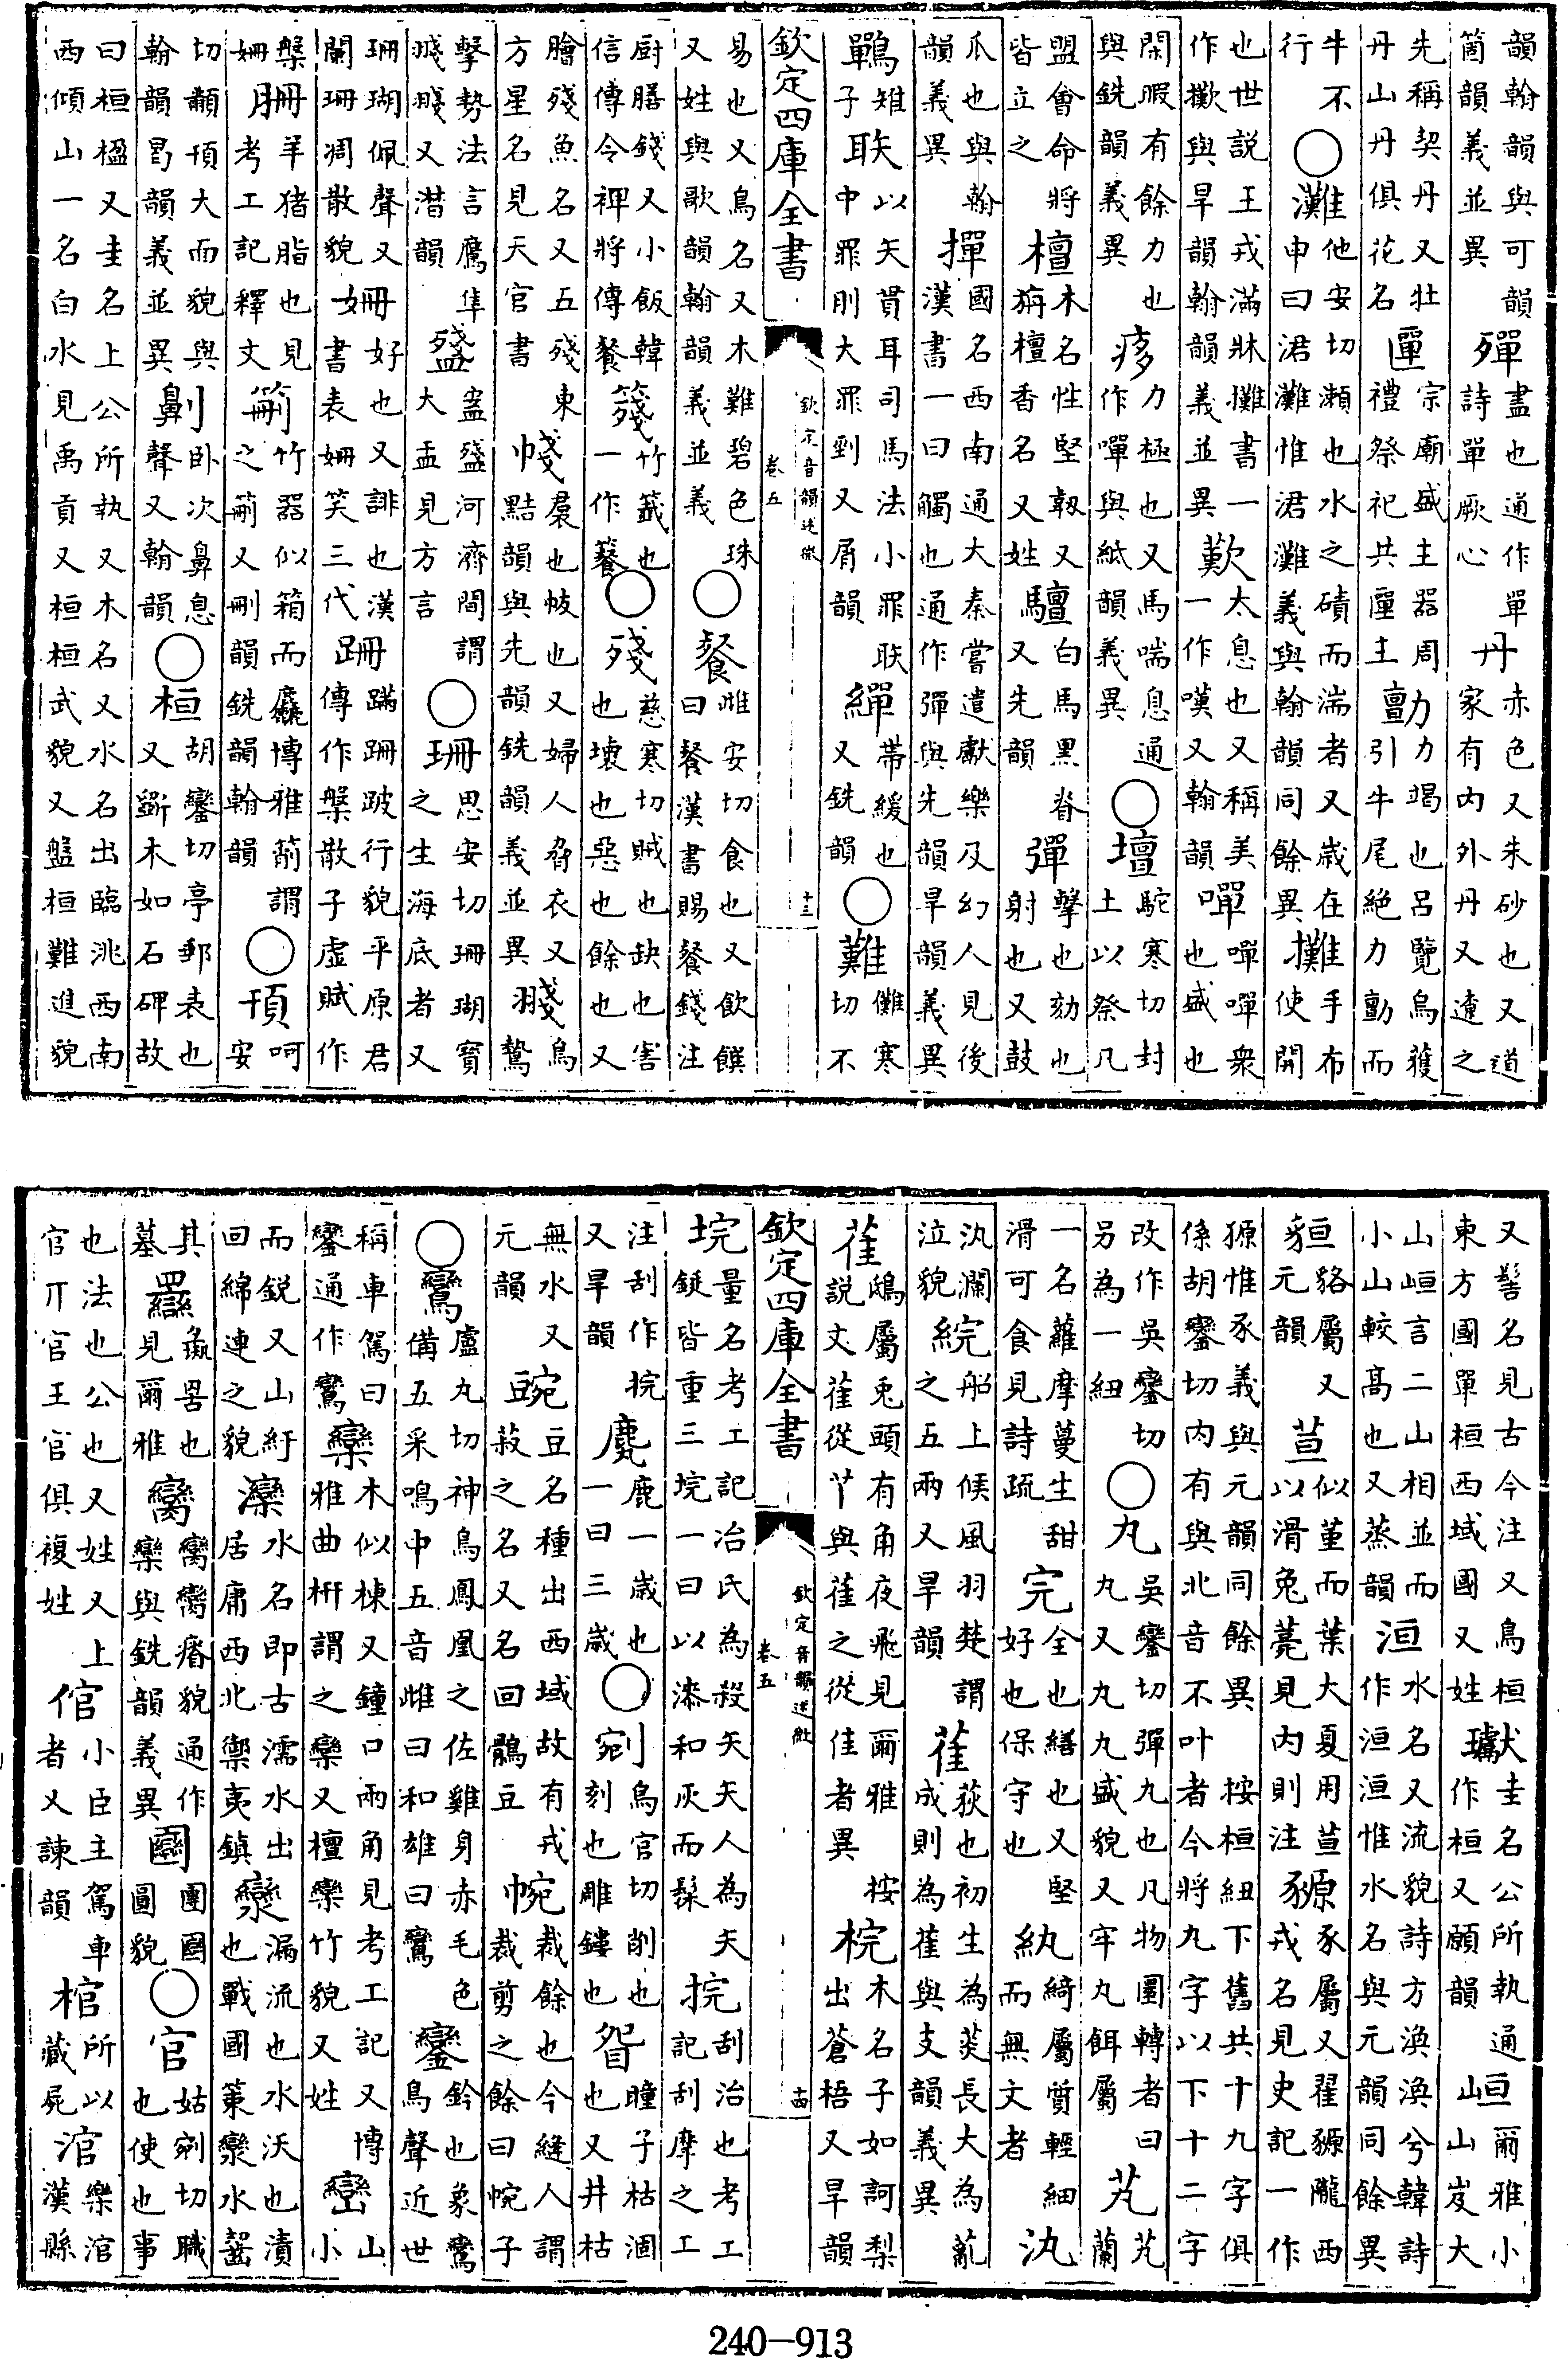 韻翰韻與可韻箇韻義並異 殫盡也通作單詩單厥心 丹赤色又朱砂也又道家有内外丹又遼之
先稱契丹又牡丹山丹俱花名 匰宗廟盛主器周禮祭祀共匰主 勯力竭也吕覽烏獲引牛尾絶力勯而
牛不行 ○灘他安切瀬也水之磧而湍者又歲在申曰涒灘惟涒灘義與翰韻同餘異 攤手布使開
也世説王戎滿牀攤書一作擹與旱韻翰韻義並異 歎太息也又稱美一作嘆又翰韻 嘽嘽嘽衆也盛也
閑暇有餘力也與銑韻義異 痑力極也又馬喘息通作嘽與紙韻義異 ○壇駝寒切封土以祭几
盟會命將皆立之 檀木名性堅韌又栴檀香名又姓 驙白馬黑脊又先韻 彈擊也劾也射也又鼓
爪也與翰韻義異 撣國名西南通大秦嘗遣獻樂及幻人見後漢書一曰觸也通作彈與先韻旱韻義異
鷤雉子 聅以矢貫耳司馬法小罪聅中罪刖大罪剄又屑韻 繟帶緩也又銑韻 ○難儺寒切不
欽定四庫全書 欽定音韻述微 卷五 十三
易也又鳥名又木難碧色珠又姓與歌韻翰韻義並義 ○餐雌安切食也又飲饌曰餐漢書賜餐錢注
厨膳錢又小飯韓信傳令裨將傳餐 籛竹籤也一作籑 ○殘慈寒切賊也缺也害也壞也惡也餘也又
膾殘魚名又五殘東方星名見天官書 帴裠也帔也又婦人脅衣又黠韻與先韻銑韻義並異 𦐂鳥鷙
擊勢法言鷹隼𦐂𦐂又潸韻 盞盎盞河濟間謂大盂見方言 ○珊思安切珊瑚寳之生海底者又
珊瑚佩聲又闌珊凋散貌 姍好也又誹也漢書表姍笑三代 跚蹣跚跛行貌平原君傳作槃散子虚賦作
槃姍 𦙱羊猪脂也見考工記釋文 𥬰竹器似箱而麤博雅䈰謂之𥬰又刪韻銑韻翰韻 ○頇呵安
切顢頇大而貌與翰韻曷韻義並異 鼾卧次鼻息聲又翰韻 ○桓胡鑾切亭郵表也又斲木如石碑故
曰桓楹又圭名上公所執又木名又水名出臨洮西南西傾山一名白水見禹貢又桓桓武貌又盤桓難進貌
又髻名見古今注又烏桓東方國單桓西域國又姓 瓛圭名公所執通作桓又願韻 峘爾雅小山岌大
山峘言二山相並而小山較高也又蒸韻 洹水名又流貌詩方渙渙兮韓詩作洹洹惟水名與元韻同餘異
貆貉屬又元韻 荁似堇而葉大夏用荁以滑兔薧見内則注 豲豕屬又翟豲隴西戎名見史記一作
獂惟豕義與元韻同餘異 按桓紐下舊共十九字俱係胡鑾切内有與北音不叶者今將九字以下十二字
改作吳鑾切另為一紐 ○丸吳鑾切彈丸也凡物圜轉者曰丸又丸丸盛貌又牢丸餌屬 芄芄蘭
一名蘿摩蔓生甜滑可食見詩疏 完全也繕也又堅好也保守也 紈綺屬質輕細而無文者 汍
汍瀾泣貌 綄船上候風羽楚謂之五兩又旱韻 萑荻也初生為菼長大為薍成則為萑與支韻義異
雈鴟屬兎頭有角夜飛見爾雅 按説文萑從艸與雈之從隹者異 梡木名子如訶梨出蒼梧又旱韻
欽定四庫全書 欽定音韻述微 卷五 十四
垸量名考工記冶氏為殺矢矢人為矢鋌皆重三垸一以漆和灰而髹 捖刮治也考工記刮摩之工
注刮作捖又旱韻 鹿一歳也一曰三歳 ○剜烏官切削也刻也雕鏤也 眢瞳子枯涸也又井枯
無水又元韻 豌豆名種出西域故有戎菽之名又名回鶻豆 帵裁餘也今縫人謂裁剪之餘曰帵子
○鸞盧丸切神鳥鳳凰之佐雞身赤毛色備五采鳴中五音雌曰和雄曰鸞 鑾鈴也象鸞鳥聲近世
稱車駕曰鑾通作鸞 欒木似楝又鐘口兩角見考工記又博雅曲枅謂之欒又檀欒竹貌又姓 巒山小
而鋭又山紆回綿連之貌 灤水名即古濡水出居庸西北禦夷鎮 灓漏流也水沃也漬也戰國策灓水齧
其墓 羉彘罟也見爾雅 臠臠臠瘠貌通作欒與銑韻義異 圞團圞圓貌 ○官姑剜切職也使也事
也法也公也又姓又上官亓官王官俱複姓 倌小臣主駕車者又諫韻 棺所以藏屍 涫樂涫漢縣
240—913